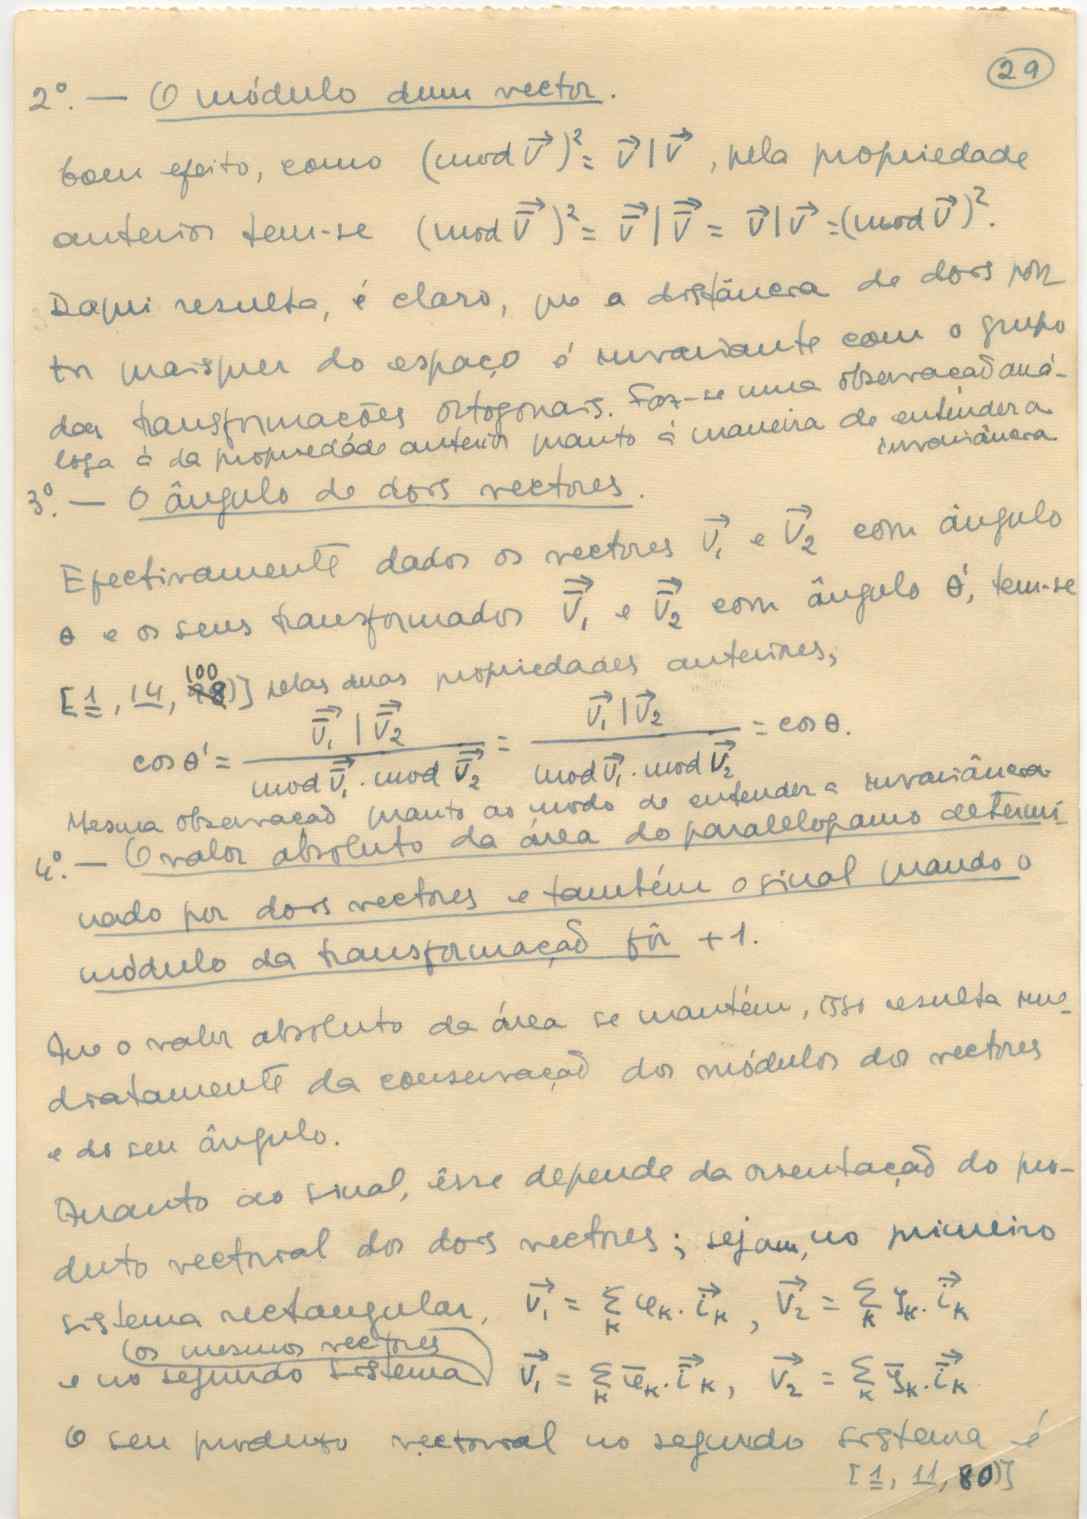 29
2º. — O módulo dum vector.
Com efeito, como (mod V⃗)² = V⃗|V⃗, pela propriedade
anterior tem-se (mod V̿⃗)² = V̿⃗|V̿⃗ = V⃗|V⃗ = (mod V⃗)².
Daqui resulta, é claro, que a distância de dois pon
tos quaisquer do espaço é invariante com o grupo
das transformações ortogonais. Faz-se uma observação aná-
loga à da propriedade anterior quanto à maneira de entender a
invariância
3º. — O ângulo de dois vectores.
Efectivamente dados os vectores V⃗₁ e V⃗₂ com ângulo
θ e os seus transformados V̿⃗₁ e V̿⃗₂ com ângulo θ', tem-se
[1, 14, 100)] pelas duas propriedades anteriores,
cos θ' = V̿⃗₁ | V̿⃗₂ / mod V̿⃗₁ . mod V̿⃗₂ = V⃗₁ | V⃗₂ / mod V⃗₁ . mod V⃗₂ = cos θ.
Mesma observação quanto ao modo de entender a invariância
4º. — O valor absoluto da área do paralelogramo determi-
nado por dois vectores e também o sinal quando o
módulo da transformação fôr +1.
Que o valor absoluto da área se mantém, isso resulta ime-
diatamente da conservação dos módulos dos vectores
e do seu ângulo.
Quanto ao sinal, êsse depende da orientação do pro-
duto vectorial dos dois vectores; sejam, no primeiro
sistema rectangular, V⃗₁ = Σₖ φₖ . i⃗ₖ, V⃗₂ = Σₖ ζₖ . i⃗ₖ
(os mesmos vectores)
e no segundo sistema V⃗₁ = Σₖ φ̄ₖ . i̿⃗ₖ, V⃗₂ = Σₖ ζ̄ₖ . i̿⃗ₖ
O seu produto vectorial no segundo sistema é
[1, 11, 80)]